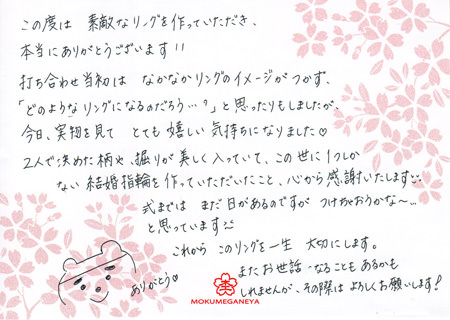 この度は 素敵なリングを作っていただき、
本当にありがとうございます!!
打ち合わせ当初は なかなかリングのイメージがつかず、
「どのようなリングになるのだろう…?」と思ったりもしましたが、
今日、実物を見て とても嬉しい気持ちになりました♡
2人で決めた柄や、掘りが美しく入っていて、この世に1つしか
ない結婚指輪を作っていただいたこと、心から感謝いたします
式までは まだ日があるのですが つけちゃおうかな〜…
と思っています
これから このリングを一生 大切にします。
また お世話になることもあるかも
しれませんが、その際は よろしくお願いします!
ありがとう♡
MOKUMEGANEYA